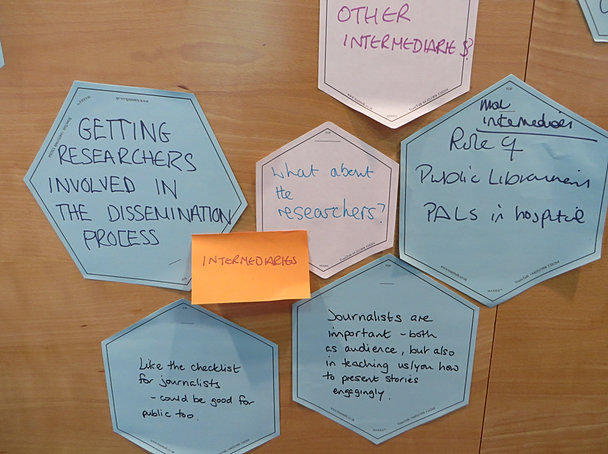 OTHER
INTERMEDIARIES?
GETTING
RESEARCHERS
INVOLVED IN
THE DISSEMINATION
PROCESS
What about
the
researchers?
intermediaries
Role of
Public Librarians
PALS in hospital
INTERMEDIARIES
Like the checklist
for journalists
- could be good for
public too.
Journalists are
important - both
as audience, but also
in teaching us/you how
to present stories
engagingly.